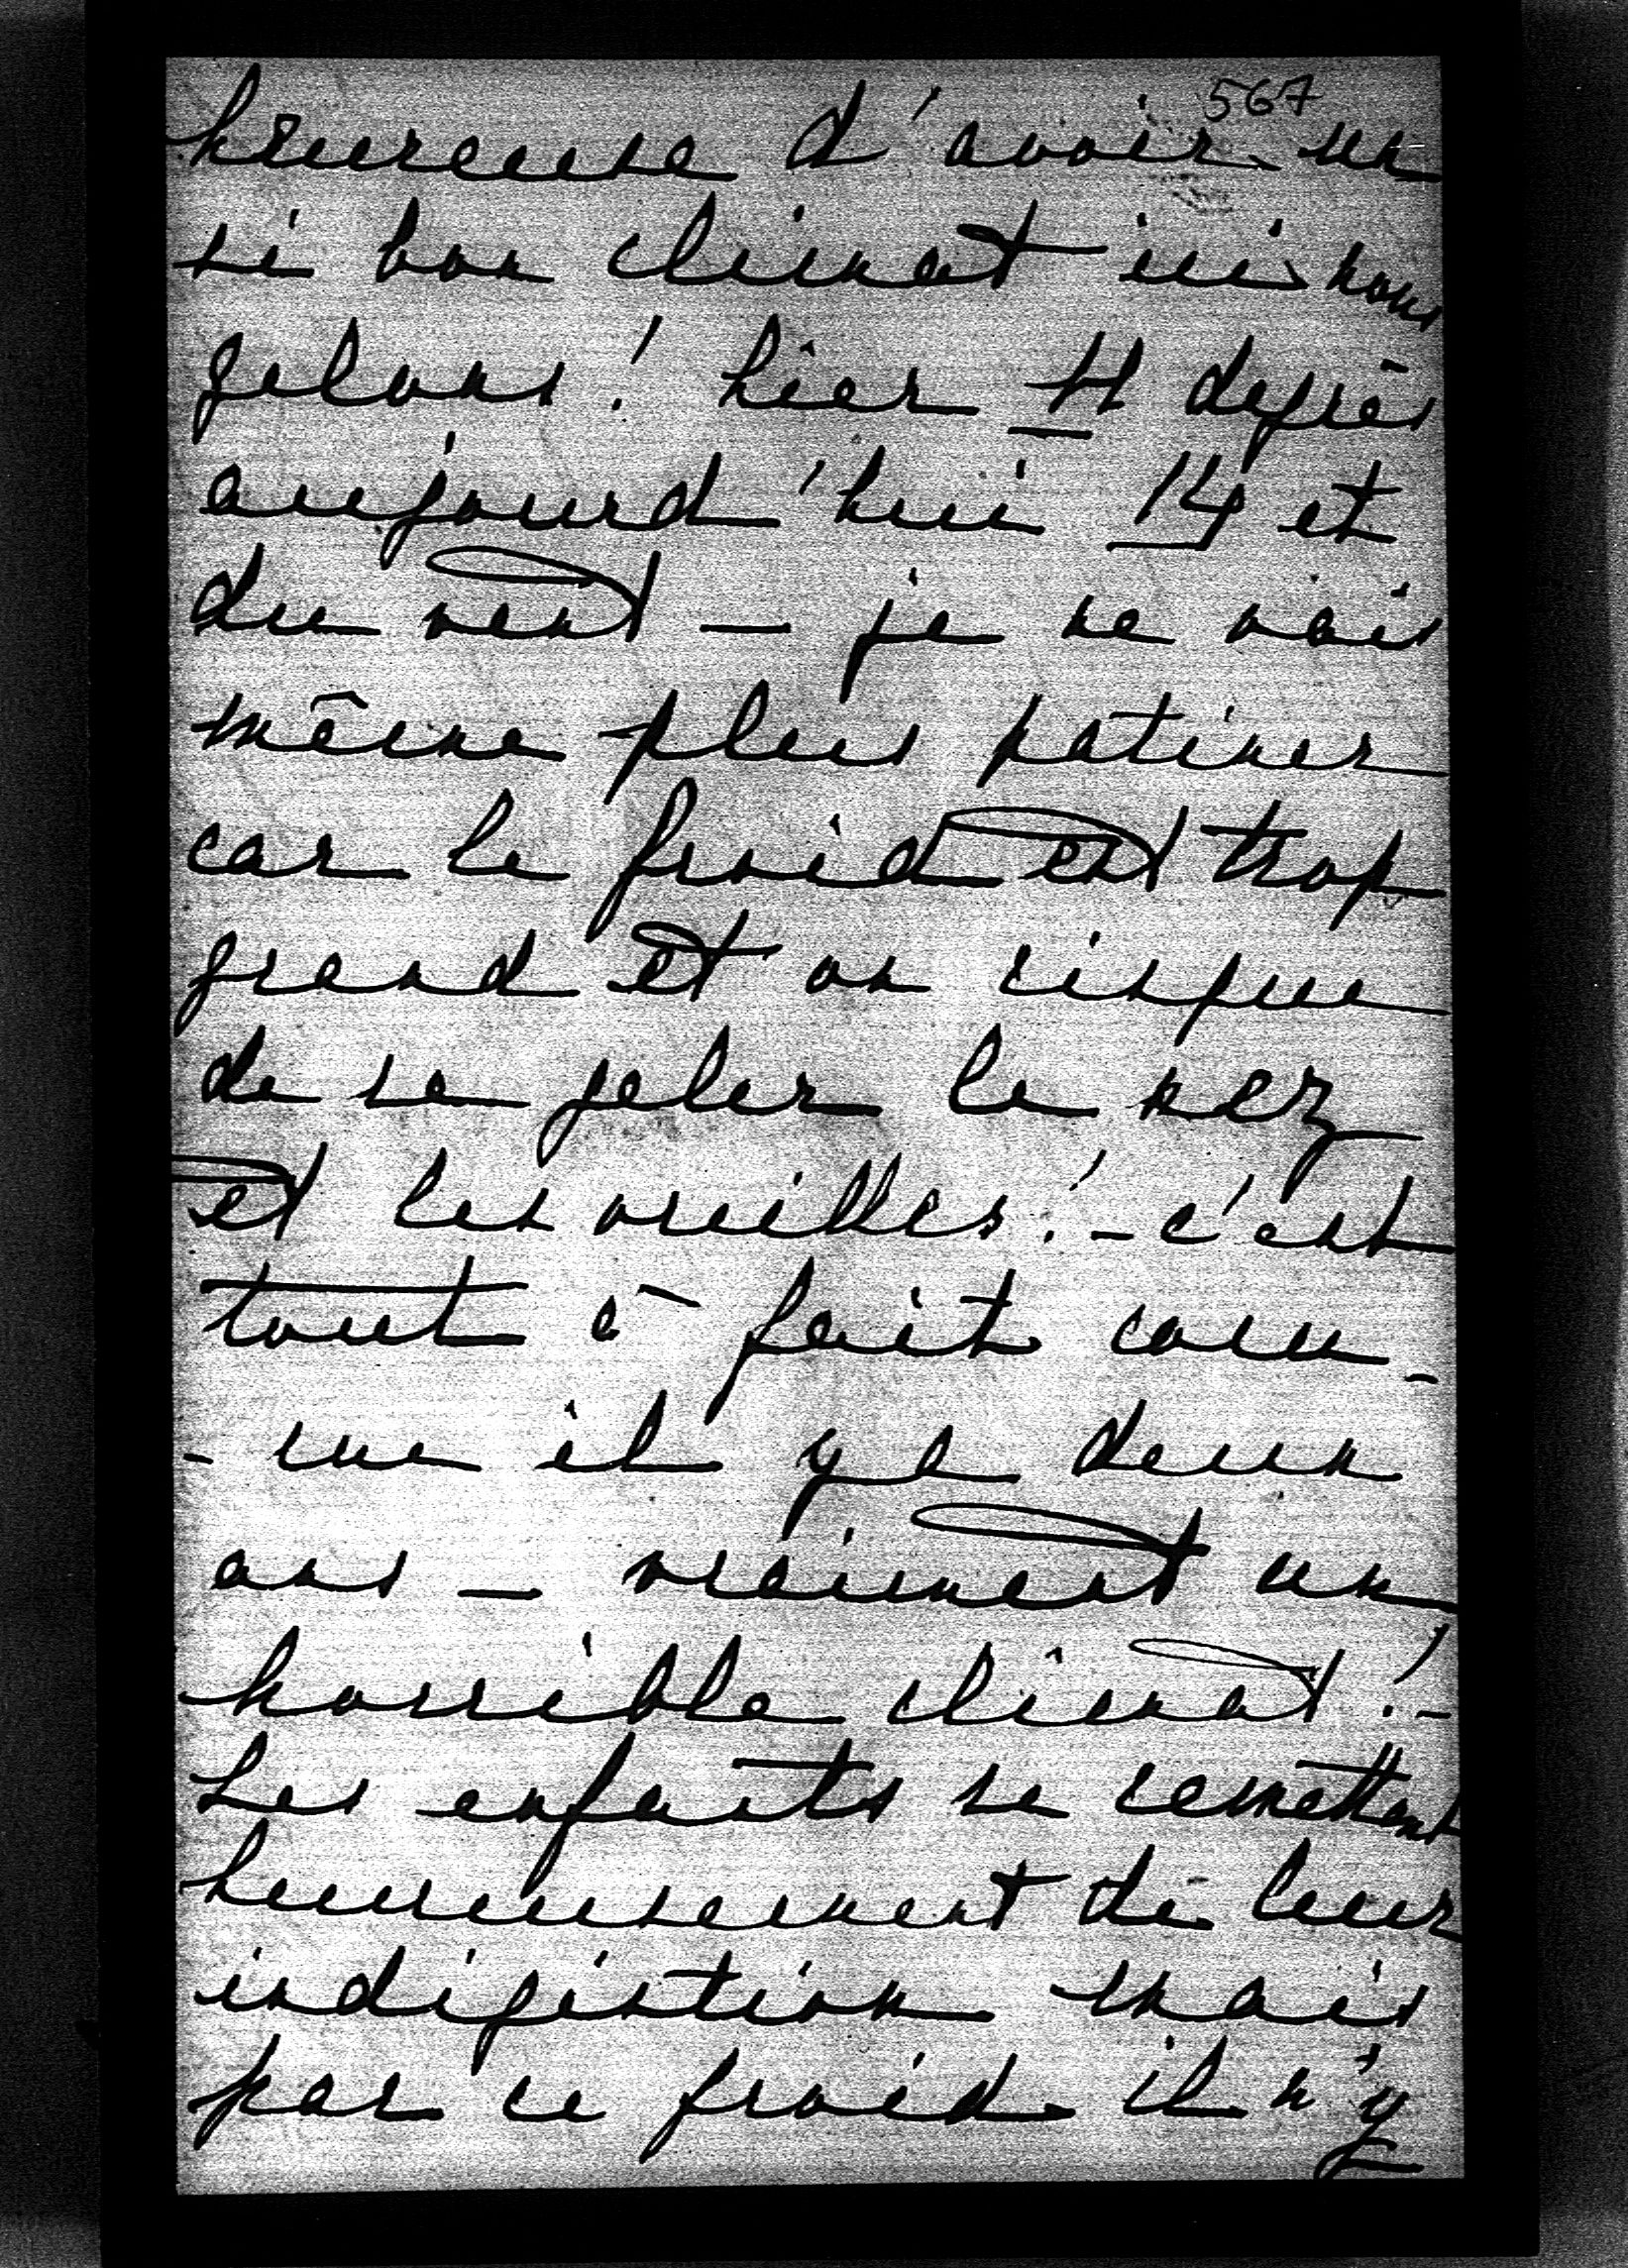 567
heureuse d'avoir un
si bon climat ici nous
gelons! hier 11 degrés
aujourd'hui 14 et
du vent — je ne vais
même plus patiner
car le froid est trop
grand et on risque
de se geler le nez
et les oreilles! - c'est
tout à fait com-
- me il y a deux
ans — vraiment un
horrible climat! -
Les enfants se remettent
heureusement de leur
indigestion mais
par ce froid il n'y